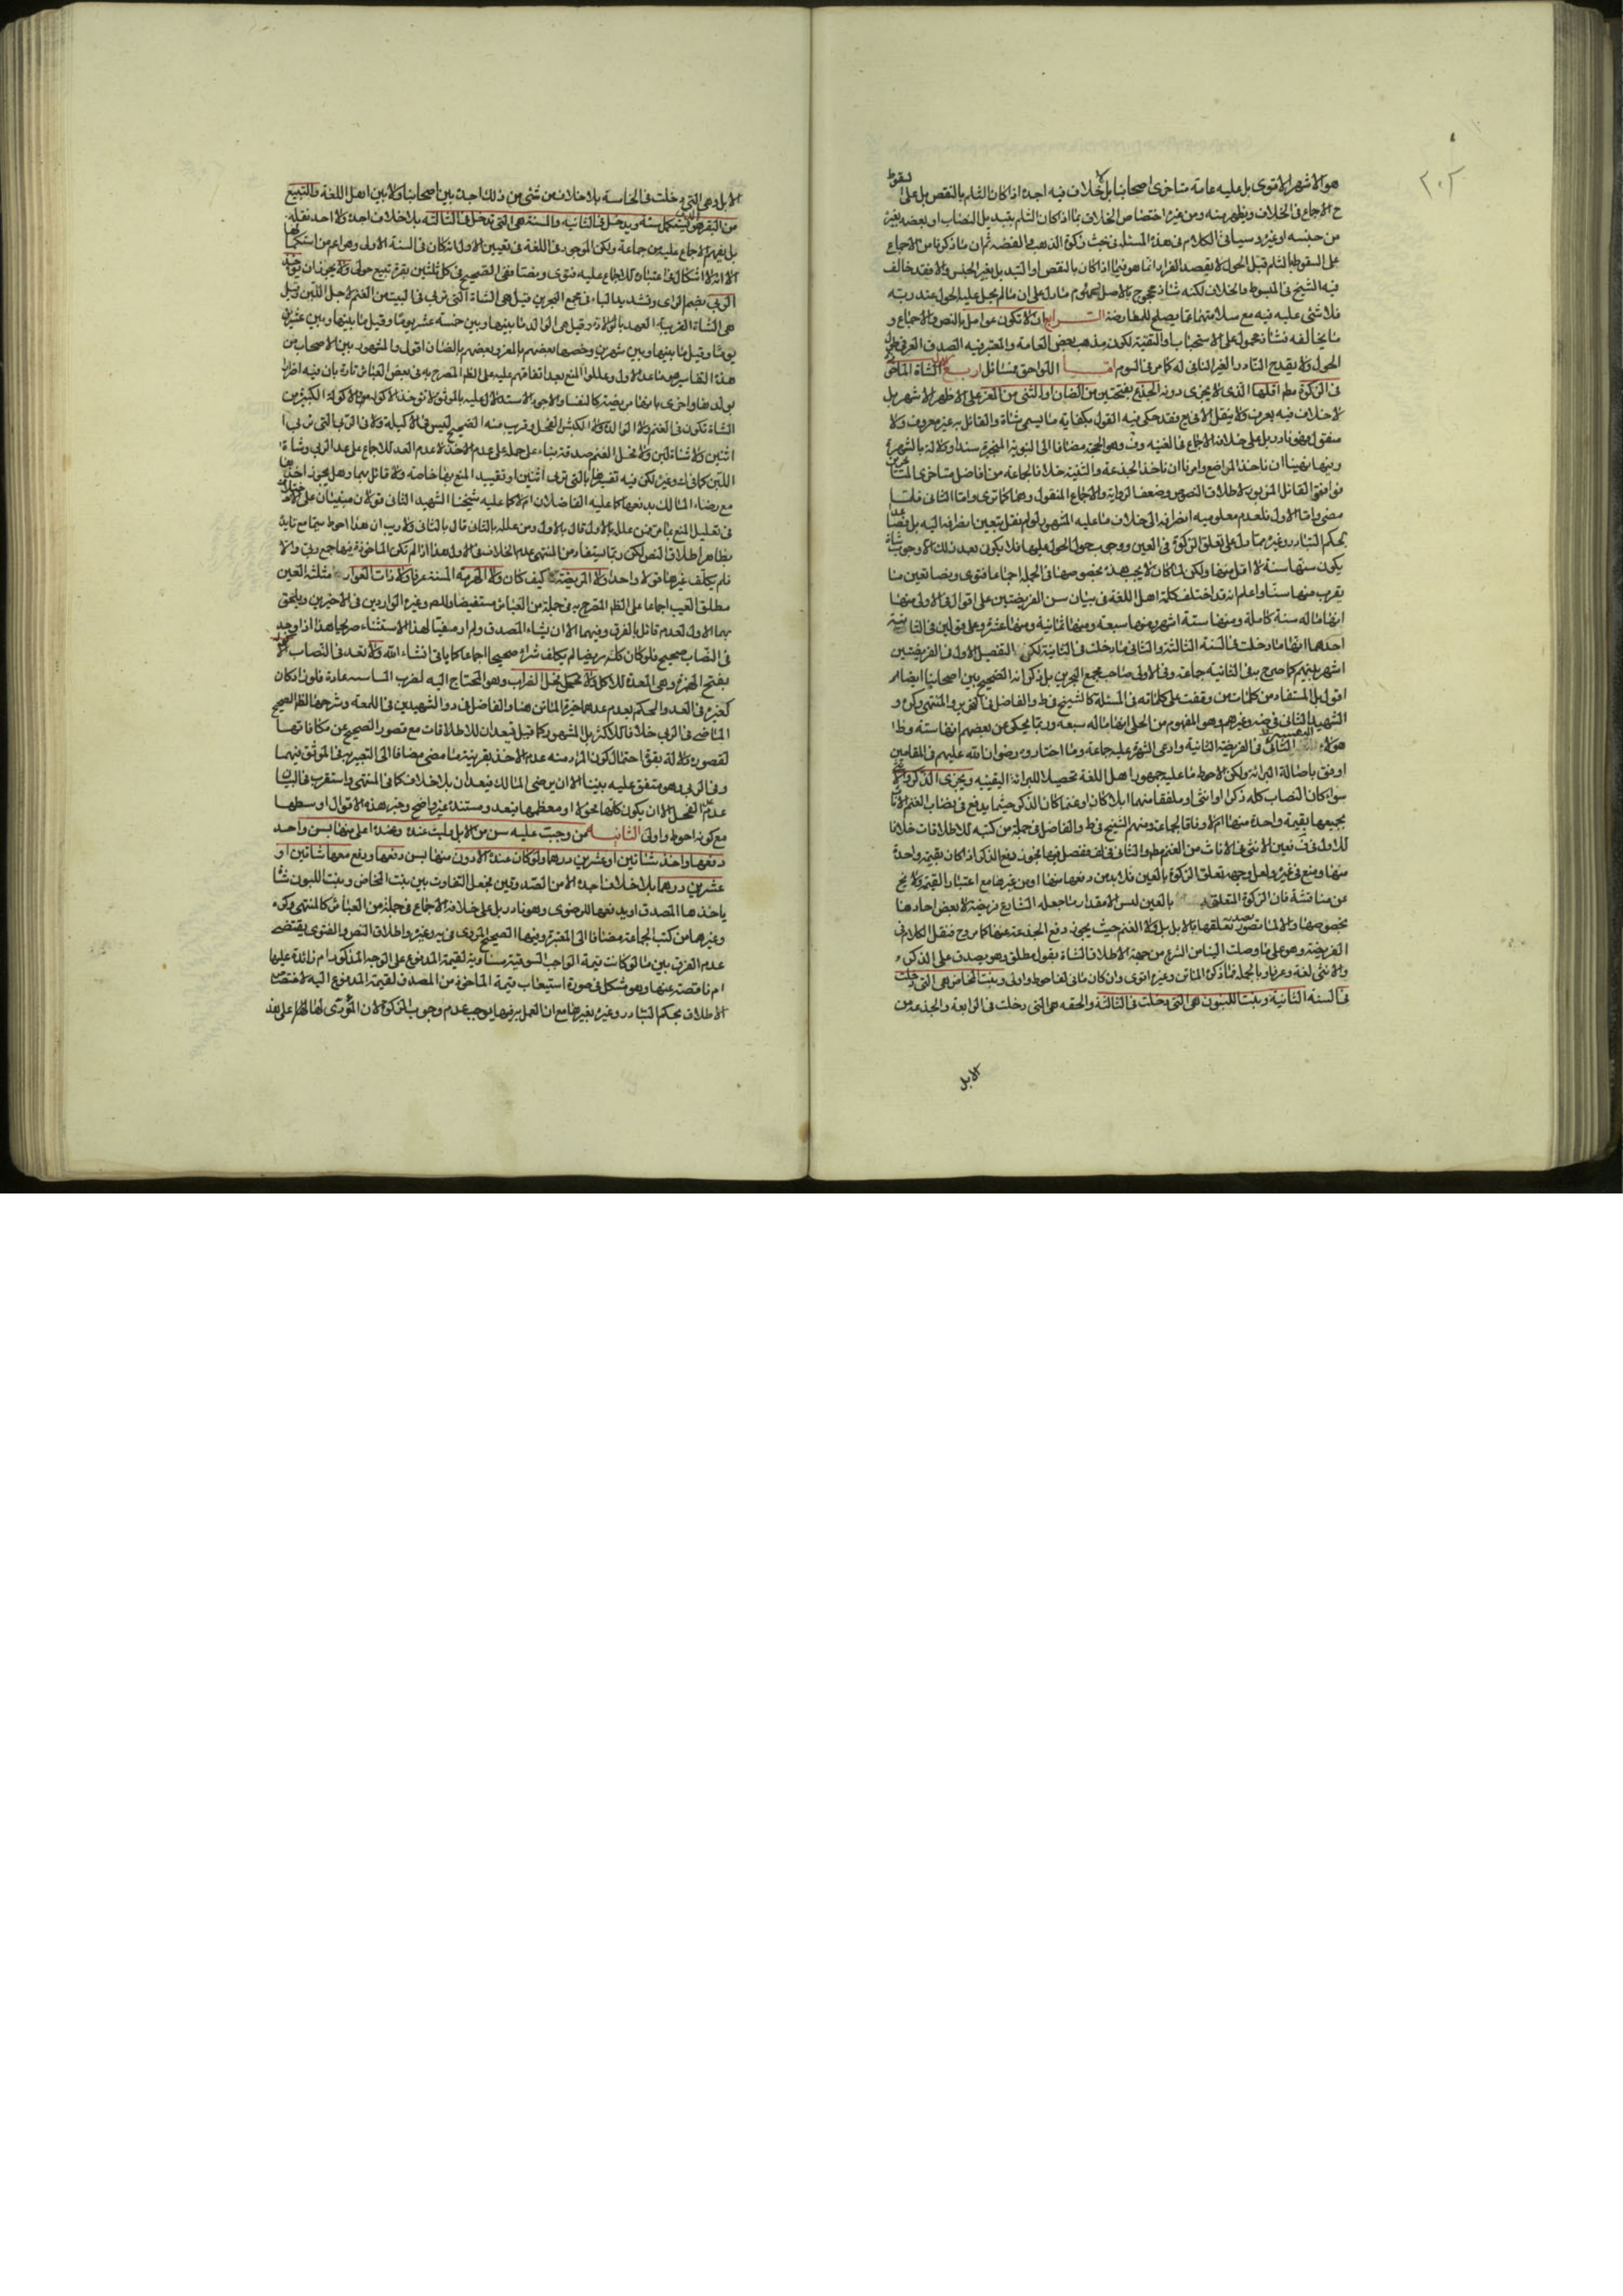 ٢٠٢
هو الاشهر الاقوى بل عليه عامة متاخرى اصحابنا بل لا خلاف فيه اجده اذا كان الثلم بالنقص بل على السقوط
ح الاجماع فى الخلاف ويظهر منه ومن غيره اختصاص الخلاف بما اذا كان الثلم بتبديل النصاب او بعضه بغير
من جنسه او غيره وسياتى الكلام فى هذه المسئلة فى بحث زكوة الذهب والفضه ثم ان ما ذكرنا من الاجماع
على السقوط بالثلم قبل الحول لا بقصد الفرار انما هو فيما اذا كان بالنقص او التبديل بغير الجنس والا فقد خالف
فيه الشيخ فى المبسوط والخلاف لكنه شاذ محجوج بالاصل وعموم ما دل على ان ما لم يحل عليه الحول عند ربه
فلا شئ عليه فيه مع سلامتهما عما يصلح للمعارضة الرابع ان لا تكون عوامل بالنص والاجماع و
ما يخالفه فشاذ محمول على الاستحباب او التقية لكون مذهب بعض العامة والمعتبر فيه الصدق العرفى طول
الحول ولا يقدح النادر الغير المنافى له كما مر فى السوم اما اللواحق فمسائل اربع الاولى الشاة الماخوذة
فى الزكوة مطم اقلها الذى لا يجزى دونه الجذع بفتحتين من الضان او الثنى من المعز على الاظهر الاشهر بل
لا خلاف فيه يعرف ولا ينقل الا فى يع فقد حكى فيه القول بكفاية ما يسمى شاة والقائل به غير معروف ولا
منقول فهو نادر بل على خلافه الاجماع فى الغنيه وف وهو الحجة مضافا الى النبوية المنجبرة سندا ودلالة بالشهرة
ومنها نهينا ان ناخذ المراضع وامرنا ان ناخذ الجذعة والثنية خلافا لجماعة من افاضل متاخرى المتاخرين
فوافقوا القائل المزبور لاطلاق النصوص وضعف الرواية والاجماع المنقول وهما كما ترى واما الثانى فلما
مضى واما الاول فلعدم معلومية انصرافه الى خلاف ما عليه المشهور لو لم نقل بتعين انصرافه اليه بل وفصا عدا
بحكم التبادر وغيره مما دل على تعلق الزكوة فى العين ووجوب حول الحول عليها فلا يكون بعد ذلك الا وجوب شاة
يكون سنها سنة لا اقل منها ولكن لما كان لا يجب هذه بخصوصها فى الجملة اجماعا فتوى ونصا تعين ما
يقرب منها سنا واعلم انه قد اختلف كلمة اهل اللغة فى بيان سن الفريضتين على اقوال فى الاولى منها
انها ما له سنة كاملة ومنها ستة اشهر ومنها سبعة ومنها ثمانية ومنها عشرة وعلى قولين فى الثانية
احدهما انها ما دخلت فى السنة الثالثة والثانى ما دخلت فى الثانية لكن التفصيل الاول فى الفريضتين
اشهر بينهم كما صرح به فى الثانية جماعة وفى الاولى صاحب مجمع البحرين بل ذكر انه الصحيح بين اصحابنا ايضا
اقول بل المستفاد من كلمات من وقفت على كلماته فى المسئلة كالشيخ فى ط والفاضل فى التحرير والمنتهى وكره و
الشهيد الثانى فى ضه وغيرهم وهو المفهوم من الحلى انها ما له سبعة وربما يحكى عن بعضهم انها ستة وظاهر
هؤلاء التفسير الثانى فى الفريضة الثانية وادعى الشهرة عليه جماعة وما اختاروه رضوان الله عليهم فى المقامين
اوفق باصالة البرائة ولكن الاحوط ما عليه جمهور اهل اللغة تحصيلا للبرائة اليقينيه ويجزى الذكر والانثى
سواء كان النصاب كله ذكرا او انثى او ملفقا منهما ابلا كان او غنما كان الذكر حيثما يدفع فى نصاب الغنم الاناث
جميعها بقيمة واحدة منها ام لا وفاقا لجماعة ومنهم الشيخ فى ط والفاضل فى جملة من كتبه للاطلاقات خلافا
للاول فى ف فعين الانثى فى الاناث من الغنم مطم والثانى فى لف ففصل فيها بجواز دفع الذكر اذا كان بقيمة واحدة
منها ومنع فى غيره ولعل وجهه تعلق الزكوة بالعين فلا بد من دفعها منها او من غيرها مع اعتبار القيمة ولا يخ
عن مناقشة فان الزكوة المتعلقة بالعين ليس الا مقدار ما جعله الشارع فريضة لا بعض احادها
بخصوصها والا لما تصور تعلقها بالابل بل ولا الغنم حيث يجوز دفع الجذعة عنها كما مر وح فنقل الكلام فى
الفريضة وهو على ما وصلت الينا من الشرع من جهة الاطلاق الشاة بقول مطلق وهو يصدق على الذكر
والانثى لغة وعرفا وبالجملة فما ذكره الماتن وغيره اقوى وان كان ما فى لف احوط واولى وبنت المخاض هى التى دخلت
فى السنة الثانية وبنت اللبون هى التى دخلت فى الثالثة والحقه هى التى دخلت فى الرابعة والجذعة من
الابل
الابل وهى التى دخلت فى الخامسة بلا خلاف من شئ من ذلك اجده بين اصحابنا ولا بين اهل اللغة والتبيع
من البقر هو الذى يستكمل سنة ويدخل فى الثانيه والمسنة هى التى تدخل فى الثالثة بلا خلاف اجده ولا احد نقله
بل يفهم الاجماع عليه من جماعة ولكن الموجود فى اللغة فى تعيين الاول ما كان فى السنة الاولى وهو اعم من استكمالها
الا انه لا اشكال فى اعتباره للاجماع عليه فتوى ونصا ففى الصحيح فى كل ثلثين بقرة تبيع حولى ولا يجوز ان يؤخذ
الربى بضم الراى وتشديد الباء فى مجمع البحرين قيل هى الشاة التى تربى فى البيت من الغنم لاجل اللبن وقيل
هى الشاة القريبة العهد بالولادة وقيل هى الوالد ما بينها وبين خمسة عشر يوما وقيل ما بينها وبين عشرين
يوما وقيل ما بينها وبين شهرين وخصها بعضهم بالمعز وبعضهم بالضان اقول والمشهور بين الاصحاب من
هذه التفاسير هو ما عدا الاول وعللوا المنع بعد اتفاقهم عليه على الظم المصرح به فى بعض العبائر تارة بان فيه اضرارا
بولدها واخرى بانها مريضة كالنفساء والاجود الاستدلال عليه بالموثق لا تؤخذ الاكولة والاكولة الكبيرة من
الشاة تكون فى الغنم ولا الوالدة ولا الكبش الفحل وقريب منه الصحيح ليس فى الاكيلة ولا فى الربى التى تربى
اثنين ولا شاة لبن ولا فحل الغنم صدقة بناء على حمله على عدم الاخذ لا عدم العد للاجماع على عد الربى وشاة
اللبن كما فى ك وغيره لكن فيه تفسيرها بالتى تربى اثنين او تقييد المنع بها خاصة ولا قائل بهما وهل يجوز اخذها
مع رضاء المالك بدفعها كما عليه الفاضلان ام لا كما عليه شيخنا الشهيد الثانى قولان مبنيان على الاختلاف
فى تعليل المنع بما مر فمن علله بالاول قال بالاول ومن علله بالثانى قال بالثانى ولا ريب ان هذا احوط سيما مع تايده
بظاهر اطلاق النص لكن ربما يستفاد من المنتهى عدم الخلاف فى الاول هذا اذا لم تكن الماخوذة منها جمع ربى والا
فلم يكلف غيرها قولا واحدا ولا المريضة كيف كان ولا الهرمة المسنة عرفا ولا ذات العوار مثلثة العين
مطلق العيب اجماعا على الظم المصرح به فى جملة من العبائر مستفيضا وللص وغيره الواردين فى الاخيرين ويلحق
بهما الاول لعدم قائل بالفرق وفيهما الا ان يشاء المصدق ولم ار مفتيا لهذا الاستثناء صريحا هذا اذا وجد
فى النصاب صحيح فلو كان كله مريضا لم يكلف شراء صحيح اجماعا كما ياتى انشاء الله ولا تعد فى النصاب الاكولة
بفتح الهمزة وهى المعدة للاكل ولا فحل الضراب وهو المحتاج اليه لضرب الماشية عادة فلو زاد كان
كغيره فى العد والحكم بعدم عدهما خيرة الماتن هنا والفاضل فى د والشهيدين فى اللمعة وشرحها للظم الصحيح
الماضى فى الربى خلافا للاكثر بل المشهور كما قيل فيعدان للاطلاقات مع قصور الصحيح عن مكافاتها
لقصوره دلالة بقوة احتمال كون المراد منه عدم الاخذ بقرينة ما مضى مضافا الى التعبير به فى الموثق فيهما
وفى الربى وهو متفق عليه بيننا الا ان يرضى المالك فيعدان بلا خلاف كما فى المنتهى واستقرب فى البيان
عدم الفحل الا ان يكون كلها فحولا او معظمها فيعد ومستنده غير واضح وخير هذه الاقوال اوسطها
مع كونه احوط واولى الثانيه من وجبت عليه سن من الابل وليست عنده وعنده اعلى منها بسن واحد
دفعها واخذ شاتين او عشرين درهما ولو كان عنده الادون منها بسن دفعها ودفع معها شاتين او
عشرين درهما بلا خلاف اجده الا من الصدوقين فجعل التفاوت بين بنت المخاض وبنت اللبون شاة
ياخذها المصدق او يدفعها للرضوى وهو نادر بل على خلافه الاجماع فى جملة من العبائر كالمنتهى وكره
وغيرهما من كتب الجماعة مضافا الى المعتبرة وفيها الصحيح المروى فى يه وغيره واطلاق النص والفتوى يقتضى
عدم الفرق بين ما لو كانت قيمة الواجب السوقية مساوية لقيمة المدفوع على الوجه المذكور ام زائدة عليها
ام ناقصة عنها وهو مشكل فى صورة استيعاب قيمة الماخوذ من المصدق لقيمة المدفوع اليه لاختصاص
الاطلاق بحكم التبادر وغيره بغيرها مع ان العمل به فيها يوجب عدم وجوب الزكوة لان المؤدى لها